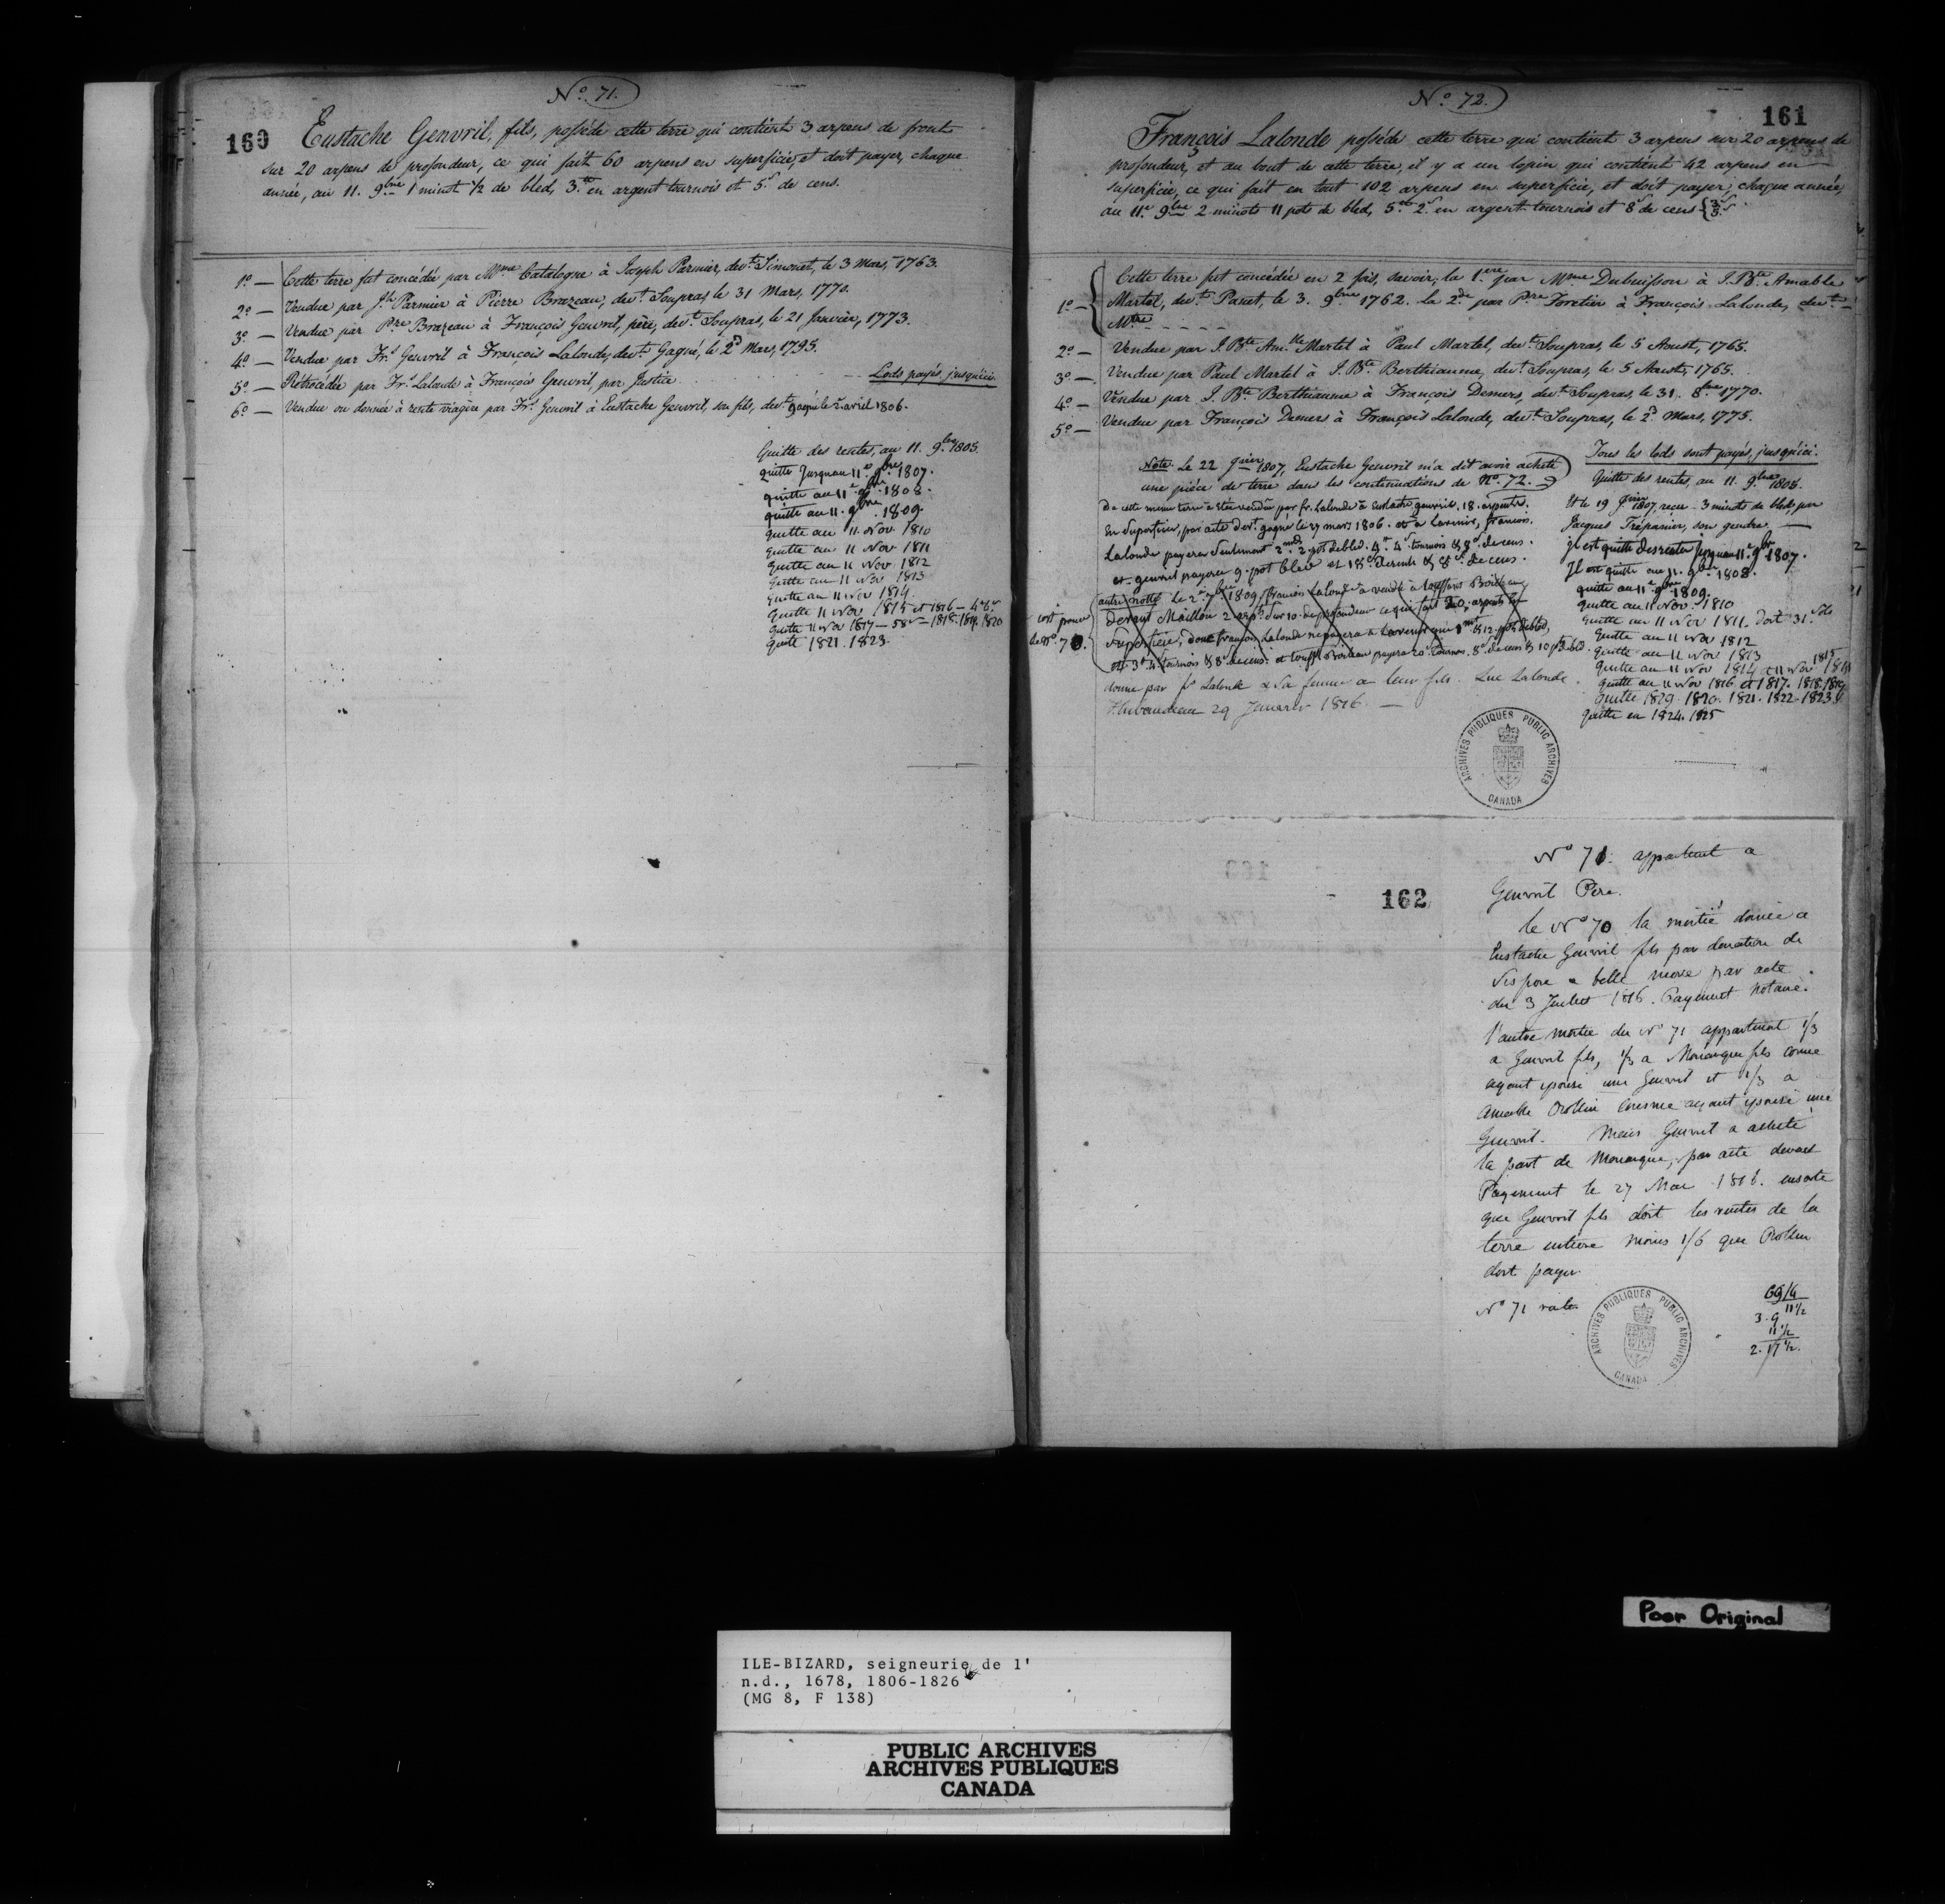 Nº 71.
160
Eustache Genvril, fils, possède cette terre qui contient 3 arpens de front
sur 20 arpens de profondeur, ce qui fait 60 arpens en superficie, et doit payer, chaque
année, au 11. 9bre 1 minot 1/2 de bled, 3.tt en argent tournois et 5.s de cens.
1º — Cette terre fut concédée par Mme Catalogne à Joseph Parmier, devt Simonet, le 3 Mars, 1763.
2º — Vendue par Jh Parmier à Pierre Brazeau, devt Soupras, le 31 Mars, 1770.
3º — Vendue par Pre Brazeau à François Genvril, père, devt Soupras, le 21 Janvier, 1773.
4º — Vendue par Frs Genvril à François Lalonde, devt Gagné, le 2d Mars, 1795.
5º — Rétrocédée par Frs Lalonde à François Genvril par Justice
Lods payés jusqu'ici.
6º — Vendue ou donnée à rente viagère par Frs Genvril à Eustache Genvril, son fils, devt gagné le 2 avril 1806.
Quitte des rentes, au 11. 9bre 1805.
quitte Jusquau 11e 9bre 1807.
quitte au 11e 9bre 1808.
quitte au 11. 9bre 1809.
quitte au 11 Nov 1810
quitte au 11 Nov 1811
quitte au 11 Nov 1812
quitte au 11 Nov 1813
quitte au 11 Nov 1814
quitte 11 Nov 1815 et 1816 —
quitte 11 Nov 1817 — 1818. 1819. 1820
quitte 1821. 1823.
Nº 72.
161
François Lalonde possède cette terre qui contient 3 arpens sur 20 arpens de
profondeur, et au bout de cette terre, il y a un lopin qui contient 42 arpens en
superficie, ce qui fait en tout 102 arpens en superficie, et doit payer, chaque année,
au 11e 9bre 2 minots 11 pots de bled, 5.tt 2.s en argent tournois et 8s de cens
1º — Cette terre fut concédée en 2 fois, savoir, la 1.ere par Mme Dubuisson à J. Bte Amable
Martel, devt Panet, le 3. 9bre 1762. La 2.de par Pre Foretier à François Lalonde, devt
Mtre
2º — Vendue par J. Bte Amble Martel à Paul Martel, devt Soupras, le 5 Aoust, 1765.
3º — Vendue par Paul Martel à J. Bte Berthiaume, devt Soupras, le 5 Aoust, 1765.
4º — Vendue par J. Bte Berthiaume à François Demers, devt Soupras, le 31. 8bre 1770.
5º — Vendue par François Demers à François Lalonde, devt Soupras, le 2d Mars, 1775.
Tous les lods sont payés, jusqu'ici.
Note. Le 22 1807, Eustache Genvril m'a dit avoir acheté
une pièce de terre dans les continuations de Nº. 72.
De cette meme terre a été vendu par fr. Lalonde à Eustache genvril. 18. arpents.
En Superficie, par acte devt gagné le 27 mars 1806. et a l'avenir, francois.
Lalonde payera Seulement 2 mds 2 pots de bled. 4tt 4s tournois & 8s de cens.
et genvril payera 9. pot bled et 18s de rente & 8 de cens.
autre notte le 2 7bre 1809 francois Lalonde a vendu à toussaint Boileau
devant Maillou 2 arpt sur 10 de profondeur ce qui fait 20. arpents en
Superficie, donc francois Lalonde ne payera a l'avenir que 1 mt & 12 pots de bled,
et 3tt 4s tournois & 8s de cens. et touss. Boileau payera 20s tournois. 8d de cens & 10 pots bled
cest pour
le Nº 70.
donné par fs Lalonde & Sa femme a leur fils. Luc Lalonde.
Thibaudeau 29 Janvier 1816. —
Quitte des rentes, au 11. 9bre 1805.
Et le 19 1807, reçu 3 minots de bled, par
Jacques Trépanier, son gendre. —
Il est quitte des rentes jusquau 11e 9bre 1807.
Il est quitte au 11. 9bre 1808.
quitte au 11e 9bre 1809.
quitte au 11 Nov. 1810
quitte au 11 Nov 1811. doit 31 sols
quitte au 11 Nov 1812
quitte au 11 Nov 1813
quitte au 11 Nov 1814 et 11 Nov 1815
quitte au 11 Nov 1816 et 1817. 1818. 1819
quitte 1820. 1821. 1822. 1823
quitte en 1824. 1825
ARCHIVES PUBLIQUES PUBLIC ARCHIVES
CANADA
162
Nº 71. appartient a
Genvril Pere.
le Nº 70 la moitié donnée a
Eustache Genvril fils par donation de
Ses pere & belle mere par acte
du 3 Juillet 1816. Payement Notaire.
l'autre moitie du Nº 71 appartient 1/3
a Genvril fils, 1/3 a Monarque fils comme
ayant epousé une Genvril et 1/3 a
Amable Rollin comme ayant epousé une
Genvril. Mais Genvril a acheté
la part de Monarque, par acte devant
Payement le 27 Mai 1816. ensorte
que Genvril fils doit les rentes de la
terre entiere moins 1/6 que Rollin
doit payer.
Nº 71
69/4
3.9 11 1/2
11 1/2
2.17 1/2.
ARCHIVES PUBLIQUES PUBLIC ARCHIVES
CANADA
Poor Original
ILE-BIZARD, seigneurie de l'
n.d., 1678, 1806-1826
(MG 8, F 138)
PUBLIC ARCHIVES
ARCHIVES PUBLIQUES
CANADA